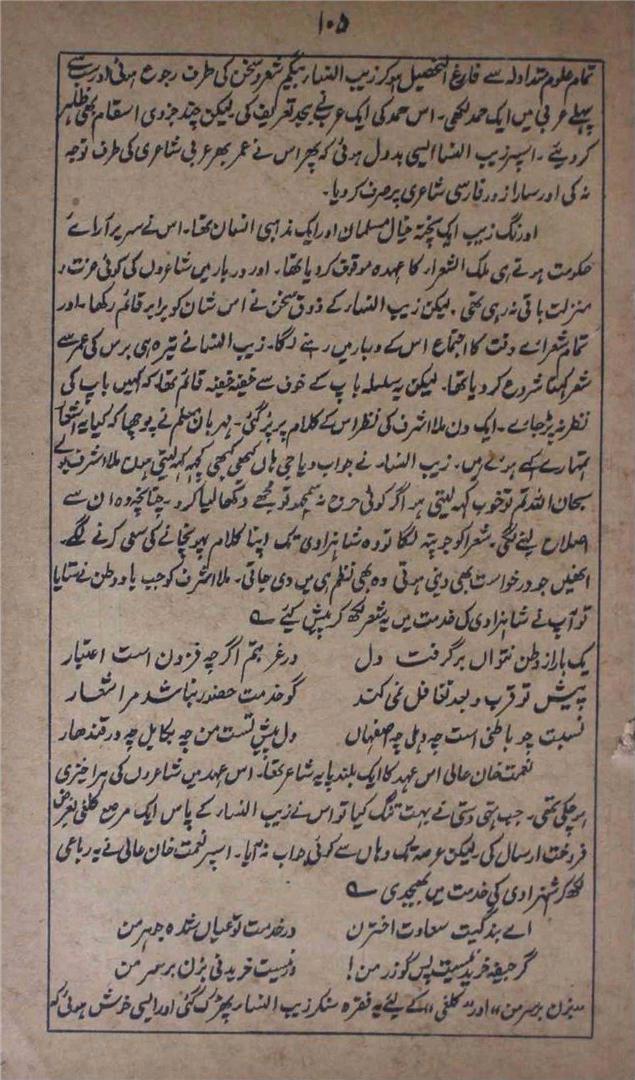 ۱۰۵
تمام علوم متداولہ سے فارغ التحصیل ہوکر زیب النساء بیگم شعر و سخن کی طرف رجوع ہوئی اور سب سے
پہلے عربی میں ایک حمد لکھی۔ اس حمد کی ایک عرب نے بیحد تعریف کی لیکن چند جزوی اسقام بھی ظاہر
کر دیئے۔ اسپر زیب النساء ایسی بددل ہوئی کہ پھر اس نے عمر بھر عربی شاعری کی طرف توجہ
نہ کی اور سارا زور فارسی شاعری پر صرف کر دیا۔
اورنگ زیب ایک پختہ خیال مسلمان اور ایک مذہبی انسان تھا۔ اس نے سریر آراۓ
حکومت ہوتے ہی ملک الشعراء کا عہدہ موقوف کر دیا تھا۔ اور دربار میں شاعروں کی کوئی عزت و
منزلت باقی نہ رہی تھی۔ لیکن زیب النساء کے ذوق سخن نے اس شان کو برابر قائم رکھا۔ اور
تمام شعراۓ وقت کا اجتماع اس کے دربار میں رہنے لگا۔ زیب النساء نے تیرہ ہی برس کی عمر سے
شعر کہنا شروع کر دیا تھا۔ لیکن یہ سلسلہ باپ کے خوف سے خفیہ خفیہ قائم تھا کہ کہیں باپ کی
نظر نہ پڑ جاۓ۔ ایک دن ملا اشرف کی نظر اس کے کلام پر پڑ گئی۔ مہربان معلم نے پوچھا کہ کیا یہ اشعار
تمہارے کہے ہوئے ہیں۔ زیب النساء نے جواب دیا جی ہاں کبھی کبھی کچھ کہہ لیتی ہوں ملا اشرف بولے
سبحان اللہ تم تو خوب کہہ لیتی ہو اگر کوئی حرج نہ سمجھو تو مجھے دکھا لیا کرو۔ چنانچہ وہ ان سے
اصلاح لینے لگی۔ شعرا کو جو پتہ لگا تو وہ شاہزادی تک اپنا کلام پہونچانے کی سعی کرنے لگے۔
انھیں جو درخواست بھی دینی ہوتی وہ بھی نظم ہی میں دی جاتی۔ ملا اشرف کو جب یاد وطن نے ستایا
تو آپ نے شاہزادی کی خدمت میں یہ شعر لکھ کر پیش کیئے ؎
یک بار از وطن نتواں برگرفت دل در غربتم اگرچہ فزون است اعتبار
پیش تو قرب و بعد تفاقل نمی کند گو خدمت حضور نباشد مرا شعار
نسبت چو باطنی است چہ دہلی چہ اصفہاں دل پیش تست من چہ بکابل چہ در قندھار
نعمت خان عالی اس عہد کا ایک بلند پایہ شاعر تھا۔ اس عہد میں شاعروں کی ہوا خیزی
ہو چکی تھی۔ جب تہی دستی نے بہت تنگ کیا تو اس نے زیب النساء کے پاس ایک مرصع کلغی بغرض
فروخت ارسال کی۔ لیکن عرصہ تک وہاں سے کوئی جواب نہ آیا۔ اسپر نعمت خان عالی نے یہ رباعی
لکھ کر شہزادی کی خدمت میں بھیجدی ؎
اے بندگیت سعادت اختر من در خدمت تو عیاں شدہ جوہر من
گر جیغہ خریدنیست پس کو زر من! ور نیست خریدنی بزن بر سر من
"بزن بر سر من" اور "کلغی" کے لیئے یہ فقرہ سنکر زیب النساء پھڑک گئی اور ایسی خوش ہوئی کہ